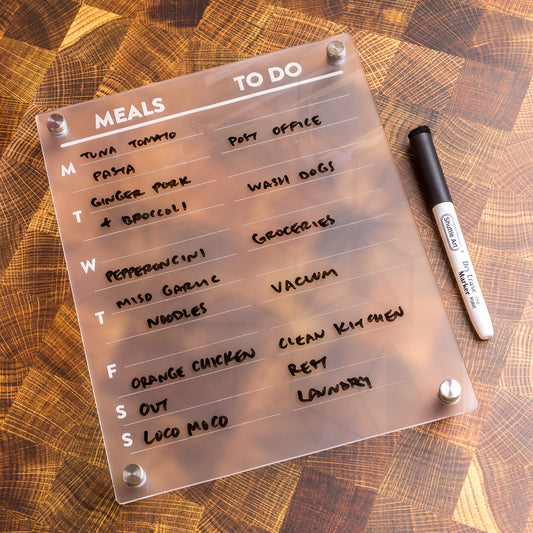 MEALS TO DO
M TUNA TOMATO POST OFFICE
PASTA
T GINGER PORK WASH DOGS
+ BROCCOLI
W PEPPERONCINI GROCERIES
T MISO GARLIC VACUUM
NOODLES
F ORANGE CHICKEN CLEAN KITCHEN
S OUT REST
S LOCO MOCO LAUNDRY
Shuttle Art
Dry Erase
Marker